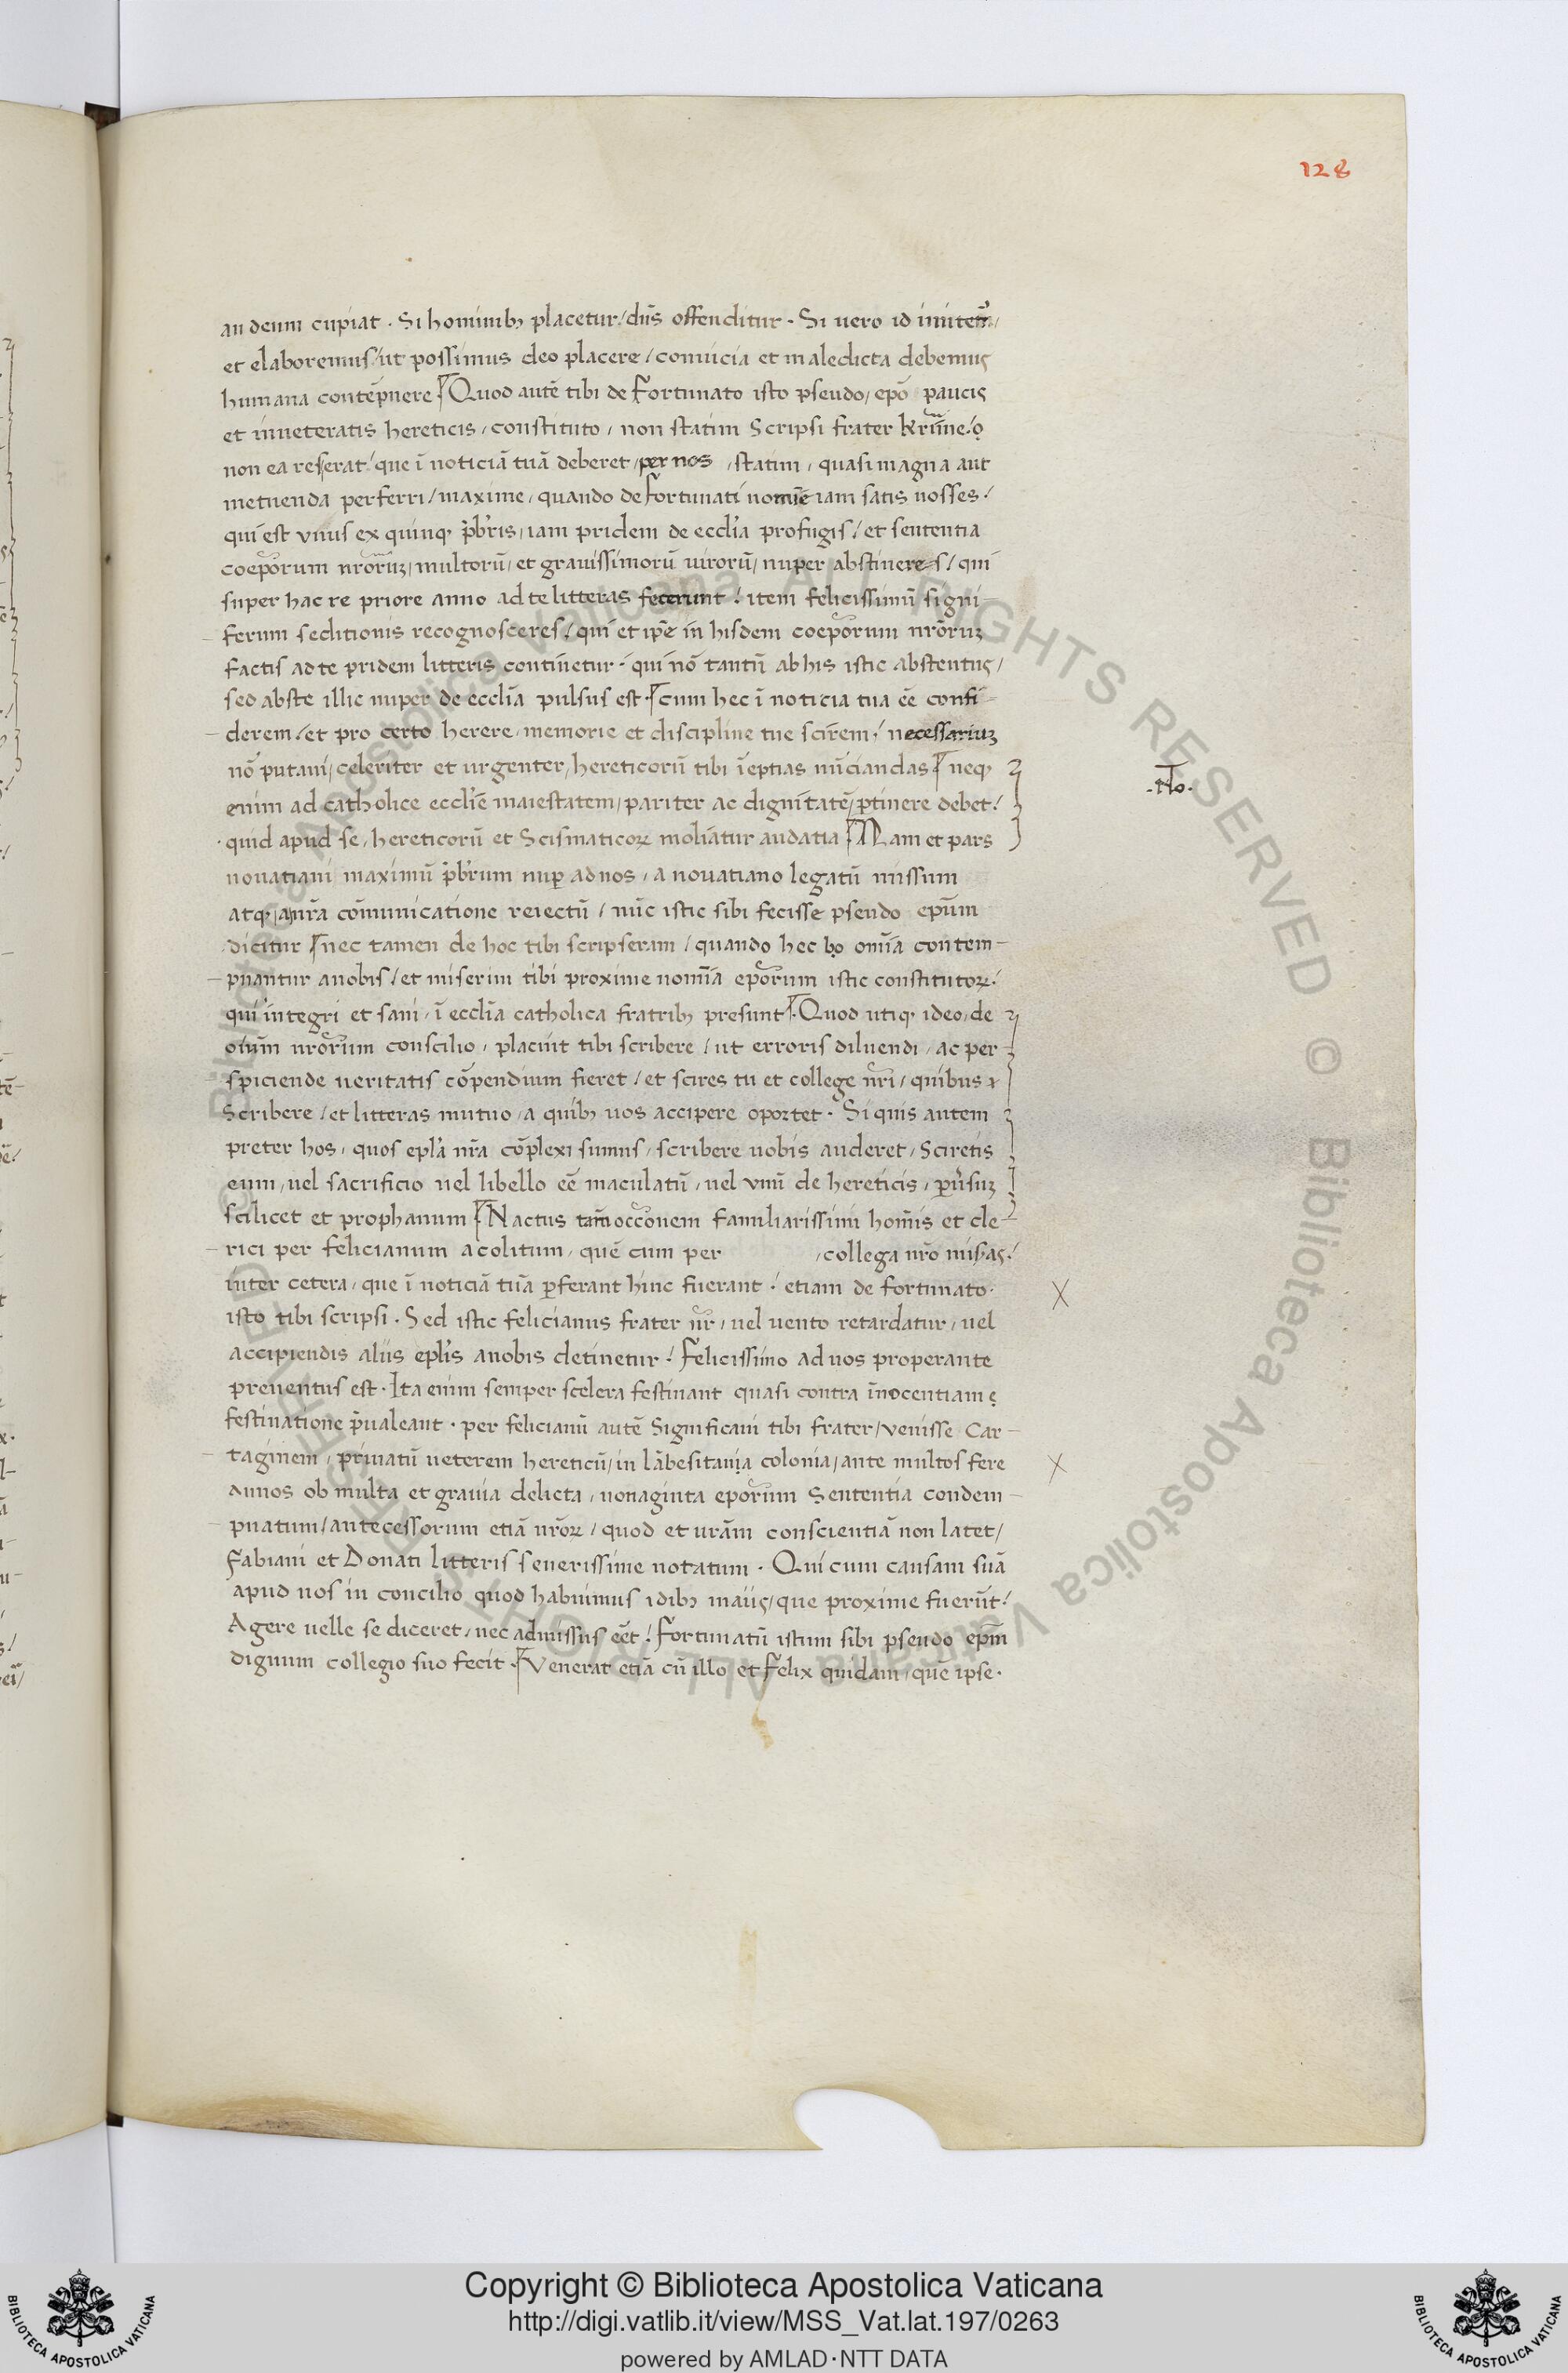 128
an deum cupiat · Si hominibꝫ placetur / dn̄s offenditur · Si uero id
et elaboremus / ut possimus deo placere / conuicia et maledicta debemus
humana contēpnere Quod autē tibi de Fortunato isto pseudo / epō paucis
et inueteratis hereticis / constituto / non statim Scripsi frater
non ea res erat / que ī noticiā tuā deberet / per nos / statim / quasi magna aut
metuenda perferri / maxime / quando de fortunati iam satis nosses /
qui est vnus ex quinqꝫ p̄bris / iam pridem de ecclīa profugis / et sententia
coep̄orum nr̄oruꝫ / multorū / et grauissimorū uirorū / nuper / qui
super hac re priore anno ad te litteras fecerunt / item felicissimū signi-
ferum seditionis recognosceres / qui et ip̄e in hisdem coep̄orum nr̄oruꝫ
factis ad te pridem litteris continetur · qui nō tantū ab his istic abstentus /
sed abste illic nuper de ecclīa pulsus est · cum hec ī noticia tua eē confi-
derem / et pro certo herere / memorie et discipline tue scirem / necessariuꝫ
nō putaui / celeriter et urgenter / hereticorū tibi īeptias nūciandas neqꝫ
enim ad catholice ecclīe maiestatem / pariter ac dignitatē / ꝑtinere debet /
quid apud se / hereticorū et Scismaticoꝝ moliātur audatia Nam et pars
nouatiani maximū p̄brum nuꝑ ad nos / a nouatiano legatū missum
atqꝫ a nr̄a cōmunicatione reiectū / nūc istic sibi fecisse pseudo ep̄um
dicitur nec tamen de hoc tibi scripseram / quando hec omīa contem-
pnantur a nobis / et miserim tibi proxime nomīa ep̄orum istic constitutoꝝ /
qui integri et sani / ī ecclīa catholica fratribꝫ presunt · Quod utiqꝫ ideo / de
oīum nr̄orum conscilio / placuit tibi scribere / ut erroris diluendi / ac per-
spiciende ueritatis cōpendium fieret / et scires tu et college nr̄i / quibus
Scribere / et litteras mutuo / a quibꝫ uos accipere oportet · Si quis autem
preter hos / quos ep̄la nr̄a cōplexi sumus / scribere uobis auderet / Sciretis
eum / uel sacrificio uel libello eē maculatū / uel vnū de hereticis / ꝑuersuꝫ
scilicet et prophanum Nactus tam̄ occ̄onem familiarissimi hom̄is et cle-
rici per felicianum acolitum / quē cum per / collega nr̄o misas /
inter cetera / que ī noticiā tuā ꝑferant hinc fuerant / etiam de fortunato ·
isto tibi scripsi · Sed istic felicianus frater nr̄ / uel uento retardatur / uel
accipiendis aliis ep̄lis a nobis detinetur / Felicissimo ad uos properante
preuentus est · Ita enim semper scelera festinant quasi contra īnocentiam
festinatione p̄ualeant · per felicianū autē Significaui tibi frater / venisse Car-
taginem / priuatū ueterem hereticū / in lābesitania colonia / ante multos fere
annos ob multa et grauia delicta / nonaginta ep̄orum Sententia condem-
pnatum / antecessorum etiā nr̄oꝝ / quod et uram̄ conscientiā non latet /
Fabiani et Donati litteris seuerissime notatum · Qui cum causam suā
apud nos in concilio quod habuimus idibꝫ maiis / que proxime fuerūt /
Agere uelle se diceret / nec admissus eēt / Fortunatū istum sibi pseudo ep̄m
dignum collegio suo fecit · Venerat etiā cū illo et Felix quidam / quē ipse ·
.No.
X
X
Copyright © Biblioteca Apostolica Vaticana
http://digi.vatlib.it/view/MSS_Vat.lat.197/0263
powered by AMLAD·NTT DATA